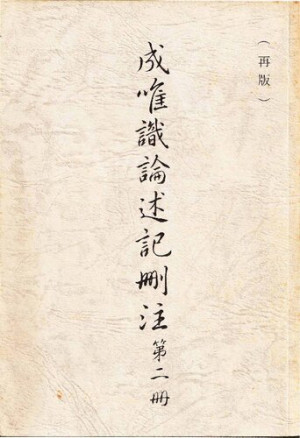 （再版）
成唯識論述記刪注 第二冊